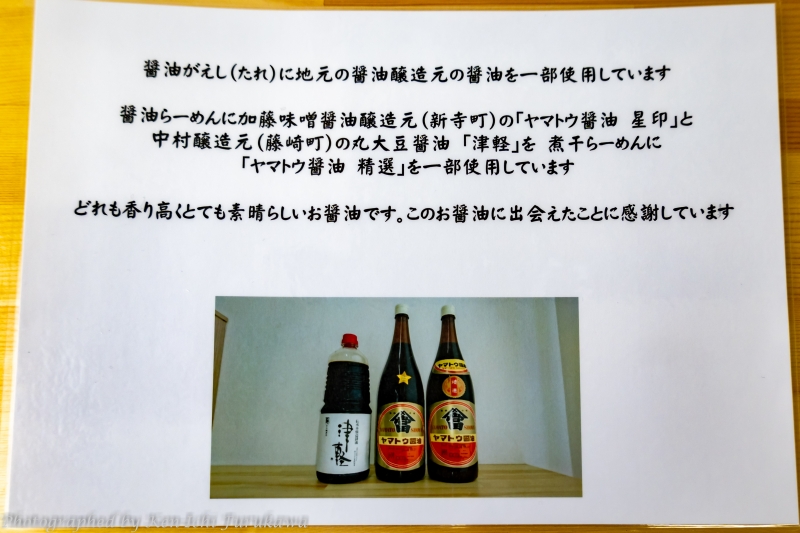 醤油がえし(たれ)に地元の醤油醸造元の醤油を一部使用しています
醤油らーめんに加藤味噌醤油醸造元(新寺町)の「ヤマトウ醤油 星印」と
中村醸造元(藤崎町)の丸大豆醤油 「津軽」を 煮干らーめんに
「ヤマトウ醤油 精選」を一部使用しています
どれも香り高くとても素晴らしいお醤油です。このお醤油に出会えたことに感謝しています
津軽
ヤマトウ醤油
ヤマトウ醤油
ヤマトウ醤油
Photographed by Ken-Ichi Furukawa